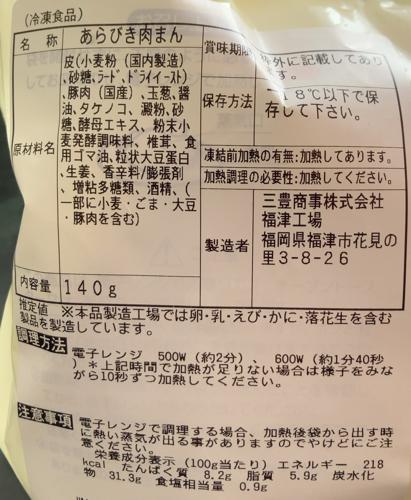 (冷凍食品)
名 称 あらびき肉まん
原材料名
皮(小麦粉(国内製造)
、砂糖、ラード、ドライイースト)
、豚肉(国産)、玉葱、醤
油、タケノコ、澱粉、砂
糖、酵母エキス、粉末小
麦発酵調味料、椎茸、食
用ゴマ油、粒状大豆蛋白
、生姜、香辛料/膨張剤
、増粘多糖類、酒精、(
一部に小麦・ごま・大豆
・豚肉を含む)
内容量 140g
賞味期限
外に記載してあり
ます。
保存方法
-18℃以下で保
存して下さい。
凍結前加熱の有無:加熱してあります。
加熱調理の必要性:加熱してください。
製造者
三豊商事株式会社
福津工場
福岡県福津市花見の
里3-8-26
推定値 ※本品製造工場では卵・乳・えび・かに・落花生を含む
製品を製造しています。
調理方法
電子レンジ 500W(約2分)、600W(約1分40秒
)*上記時間で加熱が足りない場合は様子をみな
がら10秒ずつ加熱してください。
注意事項
電子レンジで調理する場合、加熱後袋から出す時
に熱い蒸気が出る事がありますのでやけどにご注
意ください。
栄養成分表示(100g当たり)エネルギー 218
kcal たんぱく質 8.2g 脂質 5.9g 炭水化
物 31.3g 食塩相当量 0.9g